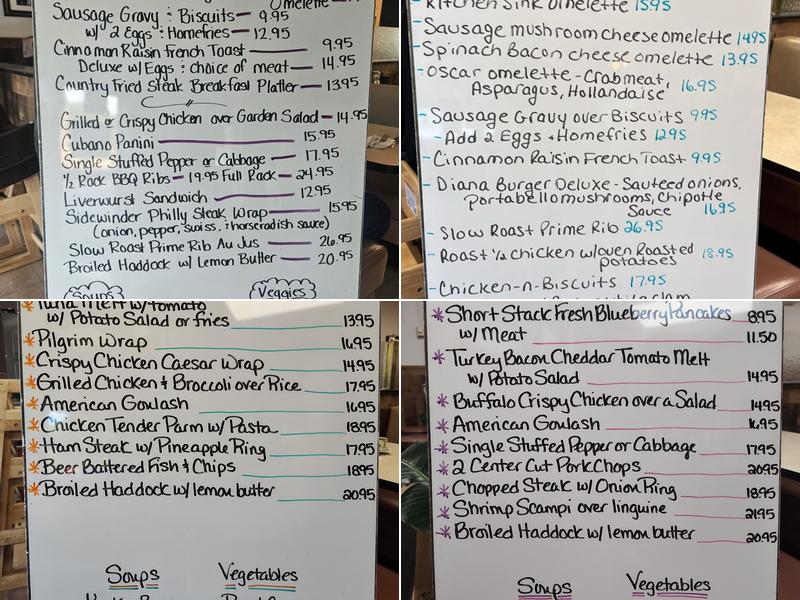 Omelette
Sausage Gravy : Biscuits — 9.95
w/ 2 Eggs : Homefries — 12.95
Cinnamon Raisin French Toast — 9.95
Deluxe w/ Eggs : choice of meat — 14.95
Country Fried Steak Breakfast Platter — 13.95
Grilled or Crispy Chicken over Garden Salad — 14.95
Cubano Panini — 15.95
Single Stuffed Pepper or Cabbage — 17.95
1/2 Rack BBQ Ribs — 19.95 Full Rack — 24.95
Liverwurst Sandwich — 12.95
Sidewinder Philly Steak Wrap — 15.95
(onion, pepper, swiss, : horseradish sauce)
Slow Roast Prime Rib Au Jus — 26.95
Broiled Haddock w/ Lemon Butter — 20.95
Soups Veggies
Kitchen Sink Omelette 15.95
- Sausage mushroom cheese omelette 14.95
- Spinach Bacon cheese omelette 13.95
- Oscar omelette - Crabmeat,
Asparagus, Hollandaise 16.95
- Sausage Gravy over Biscuits 9.95
- Add 2 Eggs + Homefries 12.95
- Cinnamon Raisin French Toast 9.95
- Diana Burger Deluxe - Sauteed onions,
portabello mushrooms, Chipotle
Sauce 16.95
- Slow Roast Prime Rib 26.95
- Roast 1/2 chicken w/oven Roasted
potatoes 18.95
- Chicken-n-Biscuits 17.95
Tuna Melt w/ tomato
w/ Potato Salad or fries 13.95
* Pilgrim Wrap 16.95
* Crispy Chicken Caesar Wrap 14.95
* Grilled Chicken & Broccoli over Rice 17.95
* American Goulash 16.95
* Chicken Tender Parm w/ Pasta 18.95
* Ham Steak w/ Pineapple Ring 17.95
* Beer Battered Fish & Chips 18.95
* Broiled Haddock w/ lemon butter 20.95
Soups Vegetables
* Short Stack Fresh Blueberry Pancakes 8.95
w/ Meat 11.50
* Turkey Bacon Cheddar Tomato Melt
w/ Potato Salad 14.95
* Buffalo Crispy Chicken over a Salad 14.95
* American Goulash 16.95
* Single Stuffed Pepper or Cabbage 17.95
* 2 Center Cut Pork Chops 20.95
* Chopped Steak w/ Onion Ring 18.95
* Shrimp Scampi over linguine 21.95
* Broiled Haddock w/ lemon butter 20.95
Soups Vegetables